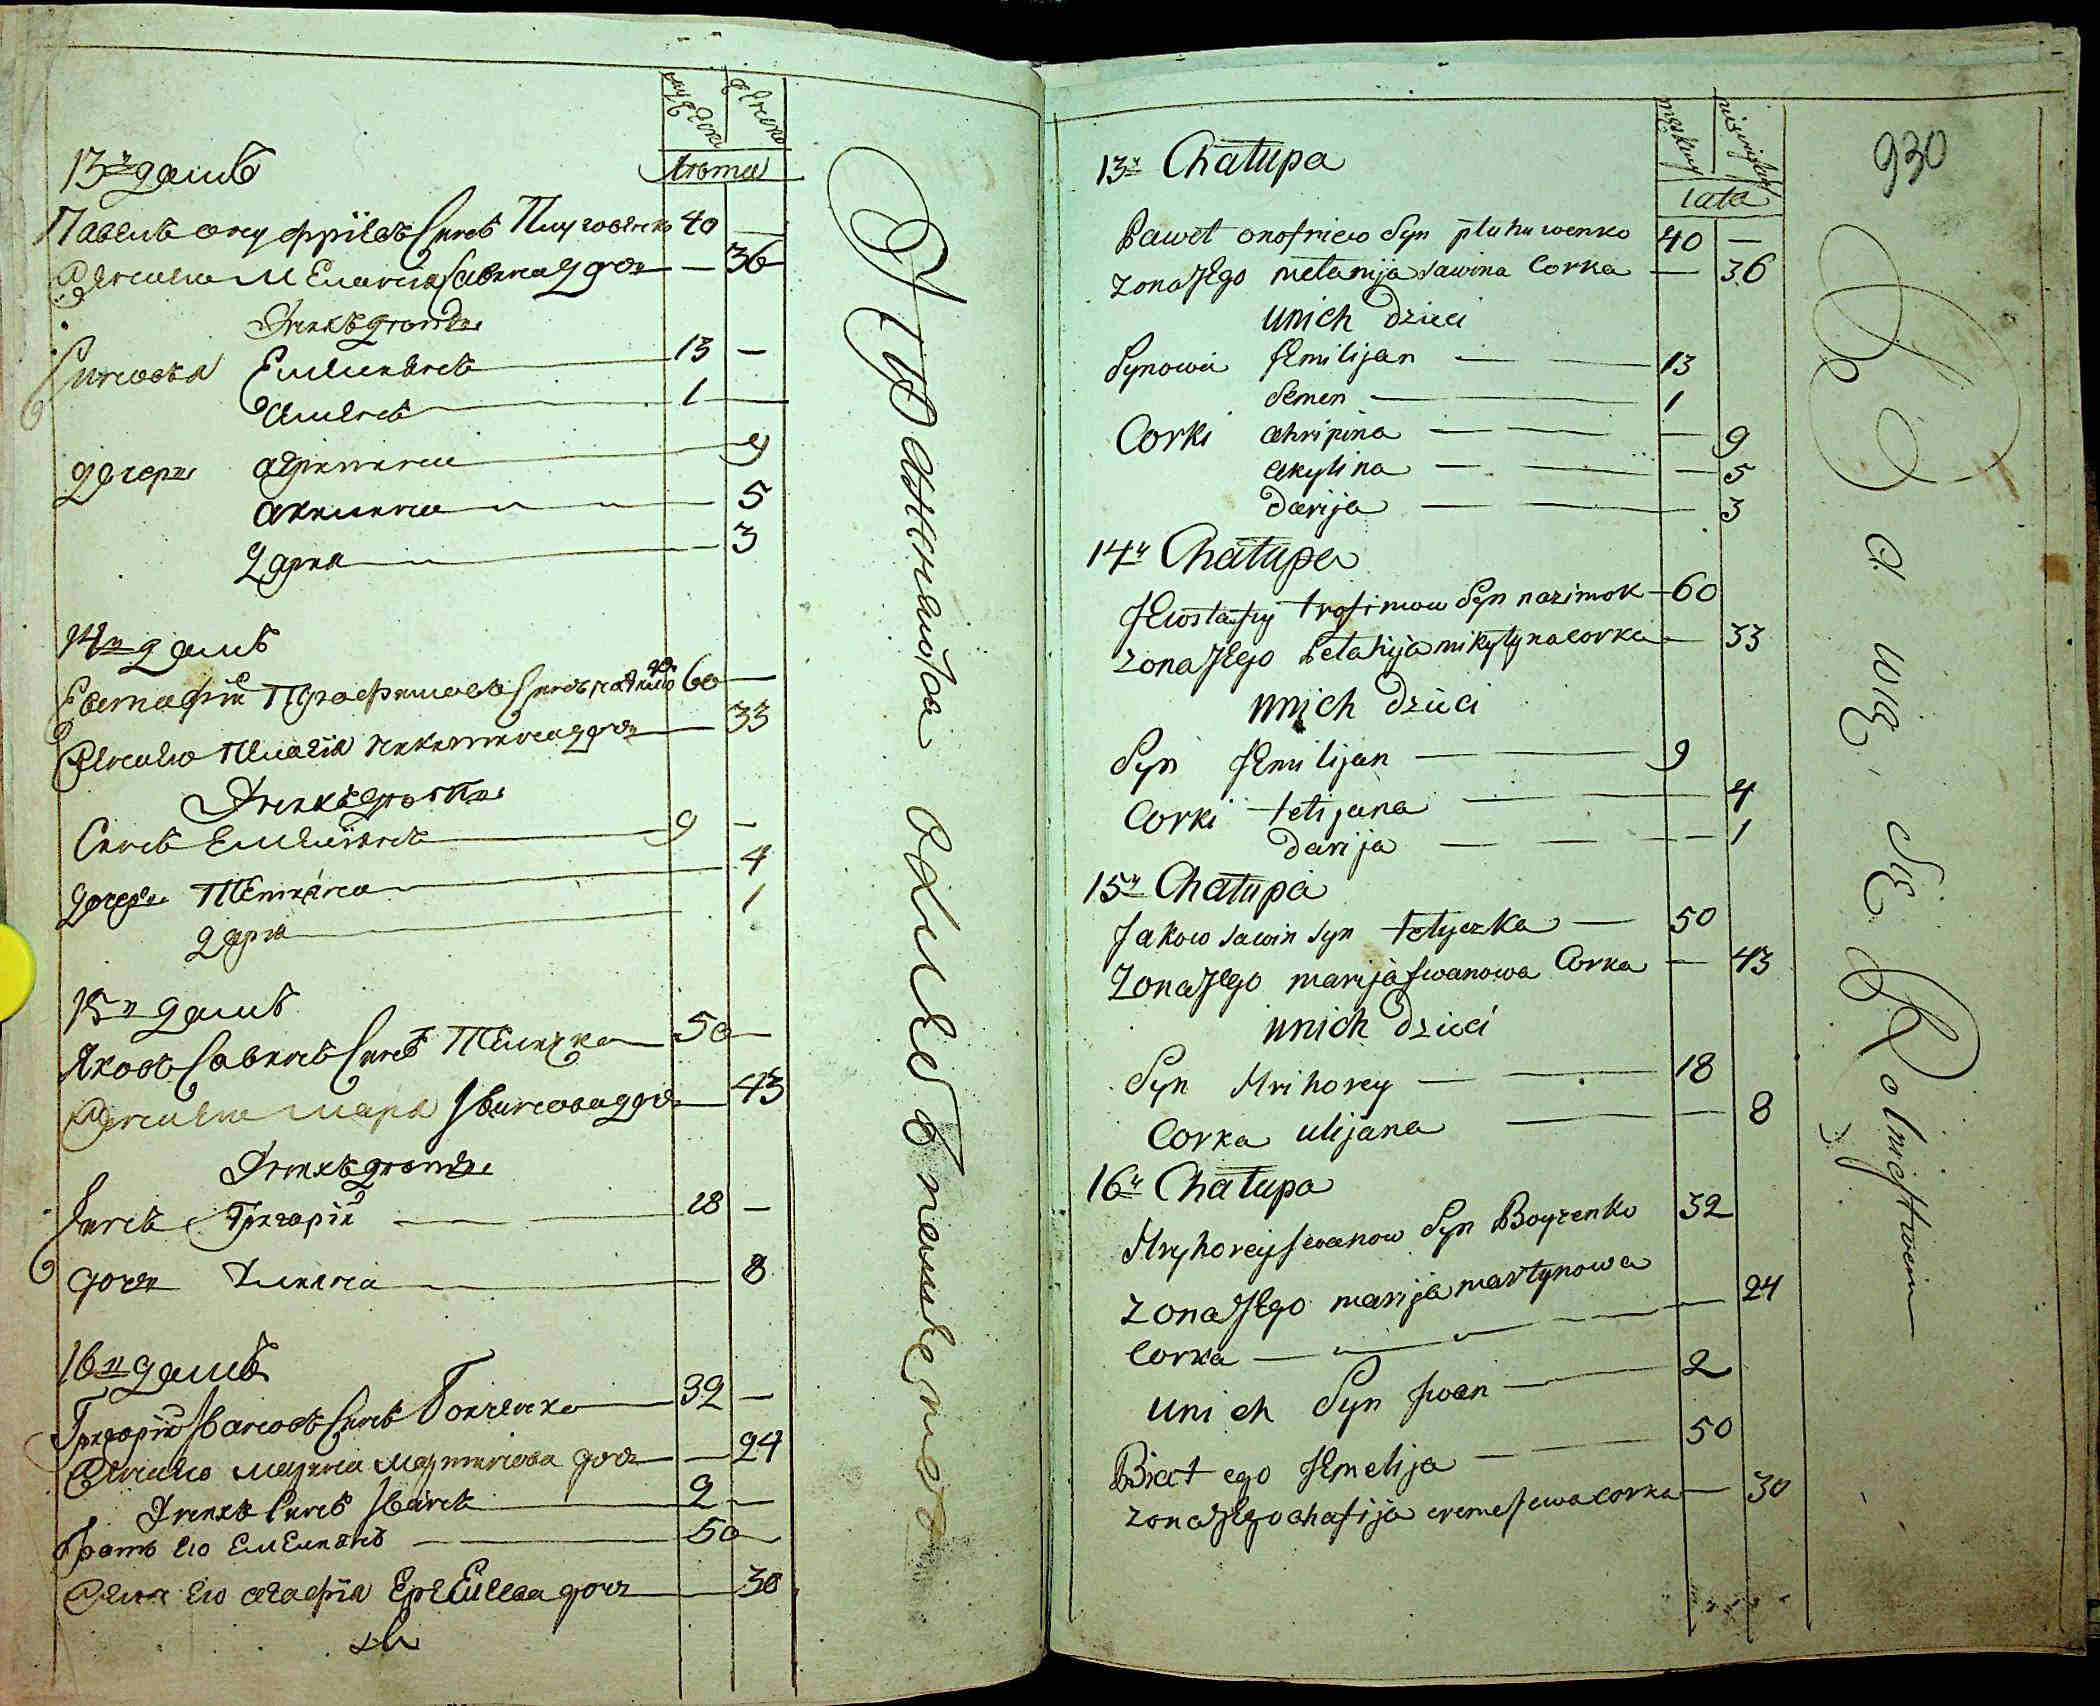 мужеска женска
Лѣта
13й домъ
Павелъ онуфріевъ Синъ Плуговенко 40 —
Жена его Меланія Савина дочь — 36
У нихъ дѣти
Синовья Емилиянъ 13 —
Семенъ 1 —
дочери агрипина 9
акилина 5
дария 3
14й домъ
Евстафій Трофимовъ Синъ назимокъ 60 —
Жена его Пелагія никитина дочь — 33
У нихъ дѣти
Синъ Емилиянъ 9 —
дочери Тетияна 4
дария 1
15й домъ
Яковъ Савинъ Синъ Теличка 50 —
Жена его мария Иванова дочь — 43
У нихъ дѣти
Синъ Григорій 18 —
дочь Улияна 8
16й домъ
Григорій Ивановъ Синъ Бойченко 32 —
Жена его мария мартинова дочь — 24
У нихъ Синъ Иванъ 2 —
Братъ его Емелиянъ 50 —
Жена его агафія Еремѣева дочь 30
Упражняются хлебопашествомъ
930
męskiey niewieśćiey
lata
13y Chałupa
Paweł onofriew Syn płuhuwenko 40 —
zona Jego mełanija sawina Corka — 36
unich dzieci
Synowie Jemilijan — 13
Semen — 1
Corki ahripina — — 9
akylina — — 5
darija — 3
14y Chałupa
Jewstafiy trofimow Syn nazimok 60
zona Jego Pełahija mikytyna corka — 33
unich dzieci
Syn Jemilijan — 9
Corki tetijana — 4
darija — — 1
15y Chałupa
Jakow sawin syn tełyczka — 50
zona Jego marija Jwanowa Corka — 43
unich dzieci
Syn Hrihorey — 18
Corka ulijana — 8
16y Chałupa
Hryhorey Jwanow Syn Boyczenko 32
zona Jego marija martynowa
Corka — 24
unich Syn Jwan — 2
Brat ego Jemelija — 50
zona Jego ahafija eremejewa corka — 30
Bawią się Rolnictwem